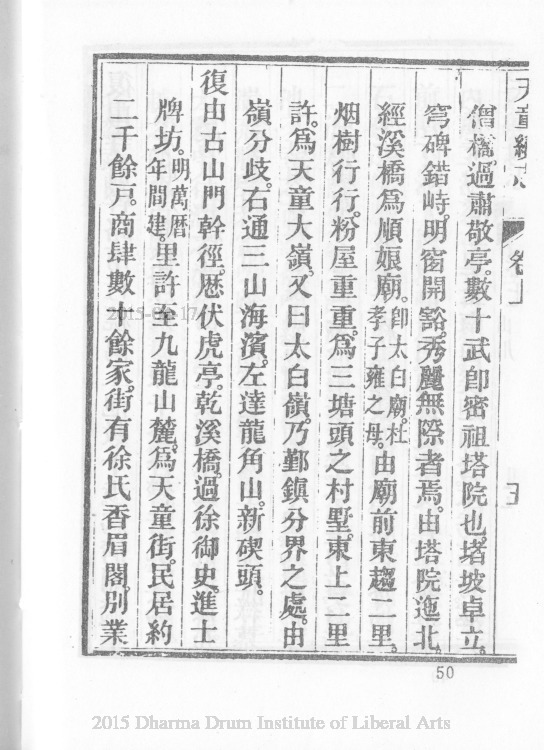 天童續志 卷上 五
僧橋。過肅敬亭。數十武卽密祖塔院也。堵坡卓立。
穹碑錯峙。明窗開豁。秀麗無際者焉。由塔院迤北。
經溪橋爲順娘廟。卽太白廟。杜孝子雍之母。由廟前東趨二里。
烟樹行行。粉屋重重。爲三塘頭之村墅。東上二里
許。爲天童大嶺。又曰太白嶺。乃鄞鎮分界之處。由
嶺分歧。右通三山海濱。左達龍角山。新碶頭。
復由古山門幹徑。歷伏虎亭。乾溪橋。過徐御史。進士
牌坊。明萬曆年間建。里許至九龍山麓。爲天童街。民居約
二千餘戶。商肆數十餘家。街有徐氏香眉閣。別業
50
2015 Dharma Drum Institute of Liberal Arts